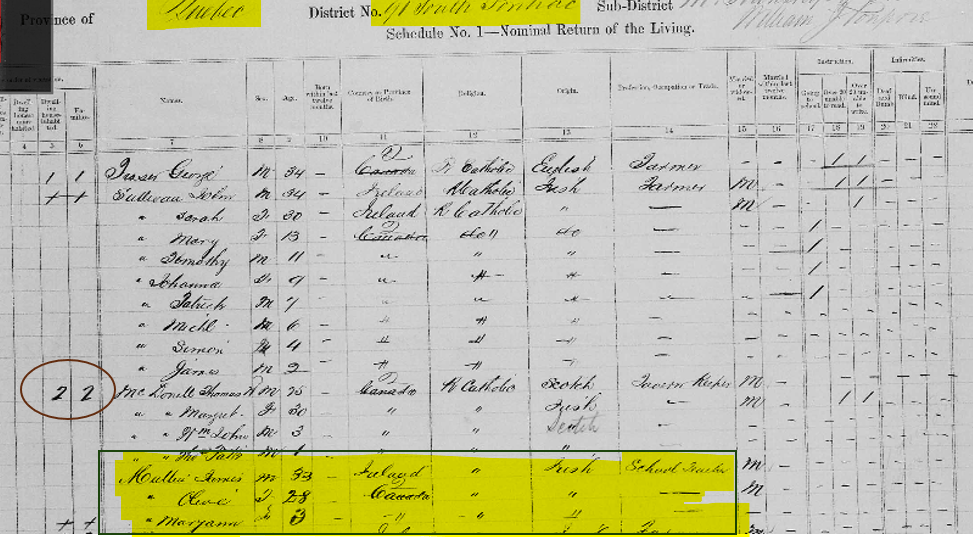 Province of Quebec District No. 91 South Pontiac Sub-District
William J
Schedule No. 1—Nominal Return of the Living.
Names. Sex. Age. Born within last twelve months. Country or Province of Birth. Religion. Origin. Profession, Occupation or Trade. Married or widowed. Married within last twelve months. Instruction. Going to school. Over 20 unable to read. Over 20 unable to write. Infirmities. Deaf and Dumb. Blind. Unsound mind.
4 5 6 7 8 9 10 11 12 13 14 15 16 17 18 19 20 21 22
1 1 Fraser George M 34 – Canada R Catholic English Farmer – – 1 1 – – –
+ + Sullivan John M 34 Ireland R Catholic Irish Farmer M – 1 1 – – –
" Sarah F 30 Ireland R Catholic " — M 1
" Mary F 13 Canada do do — 1
" Timothy M 11 " " " — 1
" Johanna F 9 " " " — 1
" Patrick M 7 " " " — 1
" Michl M 6 " " "
" Simon M 4 " " "
" James M 2 " " "
2 2 Mc Donell Thomas R M 35 Canada R Catholic Scotch Tavern Keeper M 1 1
" " Margret F 30 " " Irish M
" " Wm John M 3 " " Scotch
" " Thos Patk M 1 " " "
Mullin James M 33 Ireland " Irish School Teacher M
" Olive F 28 Canada " " — M
+ + " Maryann F 3 " " "